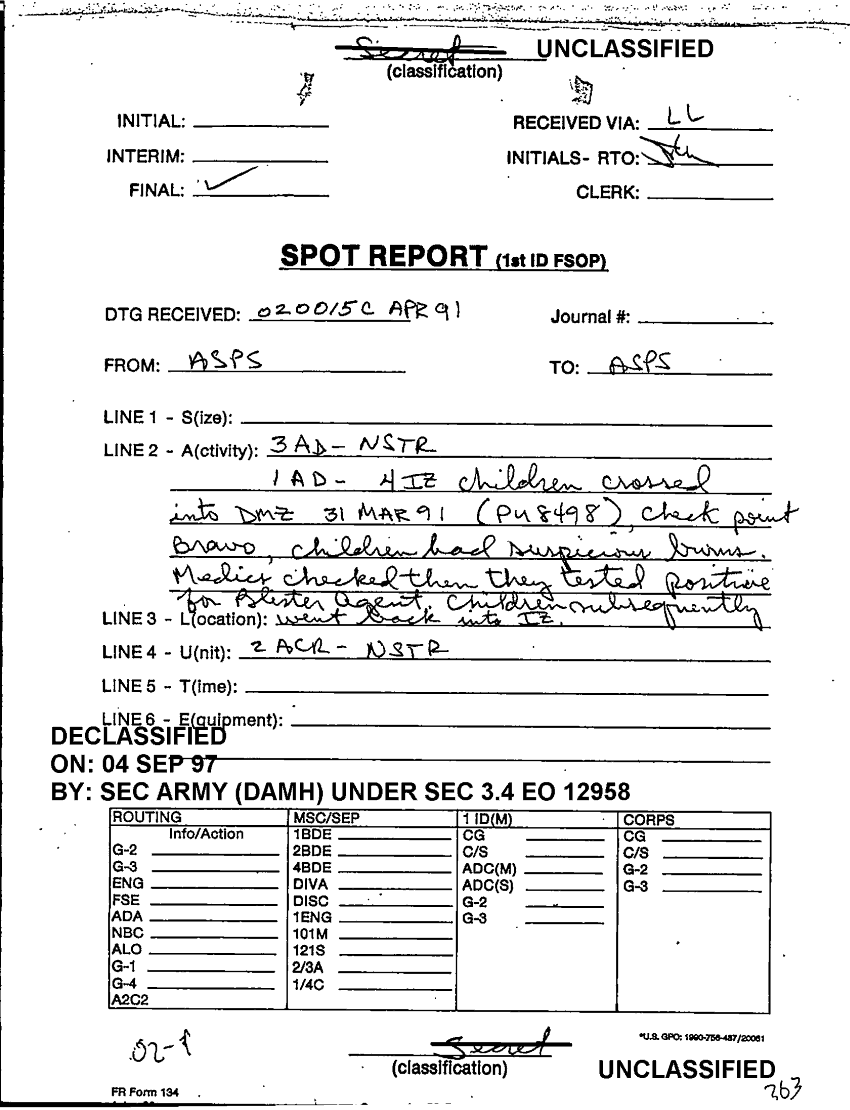 Secret UNCLASSIFIED
(classification)
INITIAL: RECEIVED VIA: LL
INTERIM: INITIALS- RTO:
FINAL: ✓ CLERK:
SPOT REPORT (1st ID FSOP)
DTG RECEIVED: 020015C APR 91 Journal #:
FROM: ASPS TO: ASPS
LINE 1 - S(ize):
LINE 2 - A(ctivity): 3AD - NSTR
1AD - 4 IZ children crossed
into DMZ 31 MAR 91 (PU8498), check point
Bravo, children had suspicious burns.
Medics checked them they tested positive
for Blister Agent. Children subsequently
LINE 3 - L(ocation): went back into IZ.
LINE 4 - U(nit): 2 ACR - NSTR
LINE 5 - T(ime):
LINE 6 - E(quipment):
DECLASSIFIED
ON: 04 SEP 97
BY: SEC ARMY (DAMH) UNDER SEC 3.4 EO 12958
ROUTING MSC/SEP 1 ID(M) CORPS
Info/Action 1BDE CG CG
G-2 2BDE C/S C/S
G-3 4BDE ADC(M) G-2
ENG DIVA ADC(S) G-3
FSE DISC G-2
ADA 1ENG G-3
NBC 101M
ALO 121S
G-1 2/3A
G-4 1/4C
A2C2
*U.S. GPO: 1990-756-487/20061
02-1 Secret
(classification) UNCLASSIFIED
FR Form 134 263